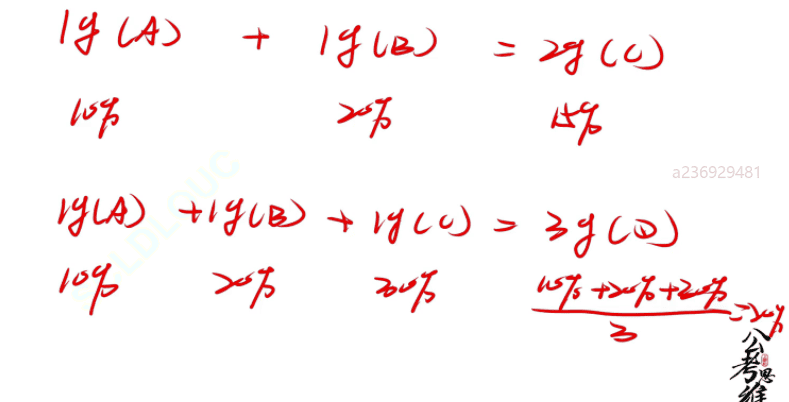 1g(A) + 1g(B) = 2g(C)
10% 20% 15%
a236929481
1g(A) +1g(B) + 1g(C) = 3g(D)
10% 20% 30% 10%+20%+30%/3 =20%
公考思维